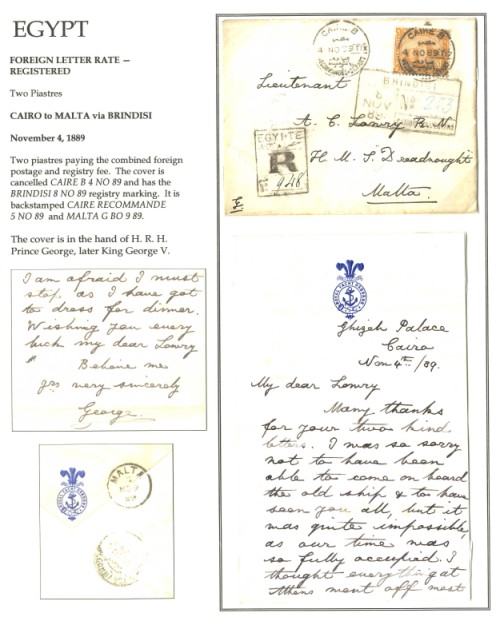 EGYPT
FOREIGN LETTER RATE —
REGISTERED
Two Piastres
CAIRO to MALTA via BRINDISI
November 4, 1889
Two piastres paying the combined foreign
postage and registry fee. The cover is
cancelled CAIRE B 4 NO 89 and has the
BRINDISI 8 NO 89 registry marking. It is
backstamped CAIRO RECOMMANDE
5 NO 89 and MALTA G BO 9 89.
The cover is in the hand of H. R. H.
Prince George, later King George V.
I am afraid I must
stop, as I have got
to dress for dinner.
Wishing you every
luck my dear Lowry
Believe me
yrs very sincerely
George.
MALTA
CAIRE B
4 NO 89
CAIRE B
4 NO 89
BRINDISI
8
NOV
89
No 253
Lieutenant
A. C. Lowry R. N.
EGYPTE
R
948
H. M. S. Dreadnought
Malta.
Ghizeh Palace
Cairo
Nov 4th /89.
My dear Lowry
Many thanks
for your two kind
letters. I was so sorry
not to have been
able to come on board
the old ship & to have
seen you all, but it
was quite impossible,
as our time was
so fully occupied. I
thought everything at
Athens went off most